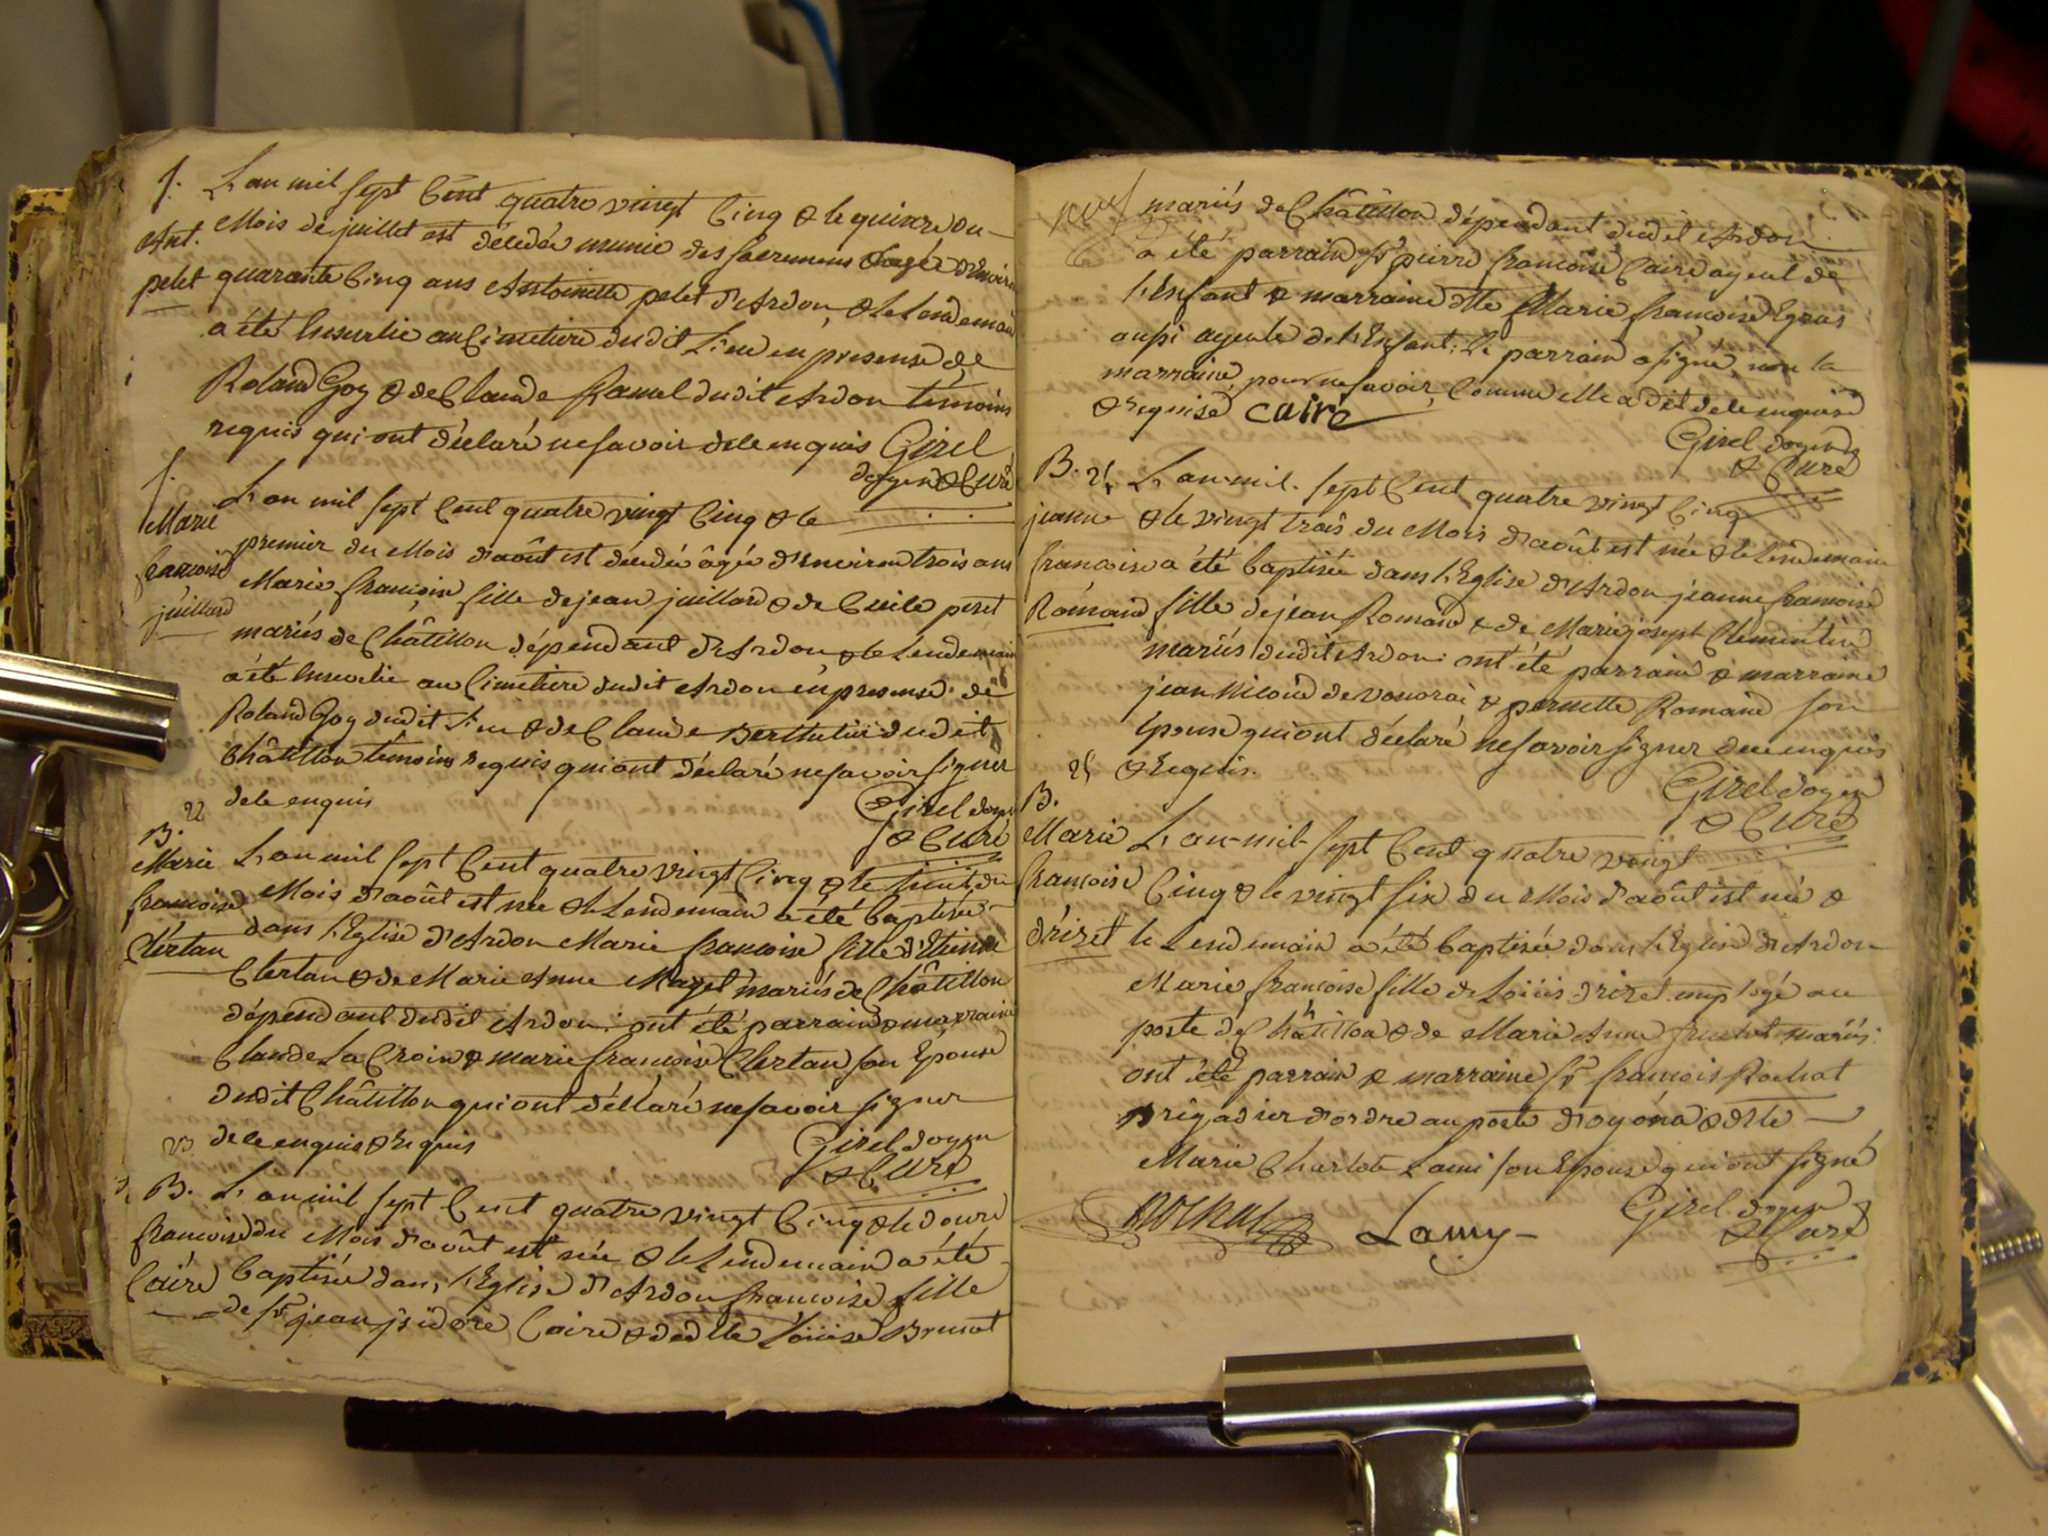 S.
Ant.
petet
L'an mil sept Cent quatre vingt Cinq & le quinze du
Mois de juillet est décédée munie des sacremens & agée d'Environ
quarante Cinq ans Antoinette petet d'Ardon, & le lendemain
a été Ensevelie au Cimetiere dudit Lieu en presense de
Roland Goy & de Claude Ramel dudit Ardon témoins
requis qui ont déclaré ne savoir de ce enquis Girel
doyen & Curé
S.
Marie
francoise
juillard
L'an mil sept Cent quatre vingt Cinq & le
premier du Mois d'août est décédée âgée d'environ trois ans
Marie françoise fille de jean juillard & de Cecile peret
mariés de Châtillon dépendant d'Ardon & le Lendemain
a été Ensevelie au Cimetiere dudit Ardon en presense de
Roland Goy dudit Lieu & de Claude dudit
Châtillon témoins requis qui ont déclaré ne savoir signer
de ce enquis Girel doyen
& Curé
22
B.
Marie
francoise
Clertan
L'an mil sept Cent quatre vingt Cinq & le huit du
Mois d'août est née & le Lendemain a été baptisée
dans l'Eglise d'Ardon Marie francoise fille d'Etienne
Clertan & de Marie Anne mariés de Châtillon
dépendant dudit Ardon: ont été parrain & marraine
Claude La Croix & marie francoise Clertan son Epouse
dudit Châtillon qui ont déclaré ne savoir signer
de ce enquis & requis Girel doyen
& Curé
23
B.
francoise
Caire
L'an mil sept Cent quatre vingt Cinq & le douze
du Mois d'août est née & le Lendemain a été
baptisée dans l'Eglise d'Ardon francoise fille
de Sr jean jsidore Caire & de dlle Loüise Brunot
mariés de Châtillon dépendant dudit Ardon
a été parrain Sr pierre francois Caire ayeul de
l'Enfant & marraine dlle Marie francoise Egras
aussi ayeule de l'Enfant: le parrain a signé, non la
marraine, pour ne savoir, Comme elle a dit de ce enquise
& requise caire
Girel doyen
& Curé
B. 24
jeanne
francoise
Romand
L'an mil sept Cent quatre vingt Cinq
& le vingt trois du Mois d'août est née & le lendemain
a été baptisée dans l'Eglise d'Ardon jeanne francoise
fille de jean Romand & de Marie josept
mariés dudit Ardon: ont été parrain & marraine
jean Nicoud de & pernette Romand son
épouse qui ont déclaré ne savoir signer de ce enquis
& Requis.
Girel doyen
& Curé
25
B.
Marie
francoise
drizet
L'an mil sept Cent quatre vingt
Cinq & le vingt six du Mois d'août est née &
le Lendemain a été baptisée dans l'Eglise d'Ardon
Marie francoise fille de Loüis drizet employé au
poste de Châtillon & de Marie Anne mariés:
ont été parrain & marraine Sr francois Rochat
Brigadier d'ordre au poste d'oyona & dlle
Marie Charlote Lami son Epouse qui ont signé
Rochat Lamy Girel doyen
& Curé